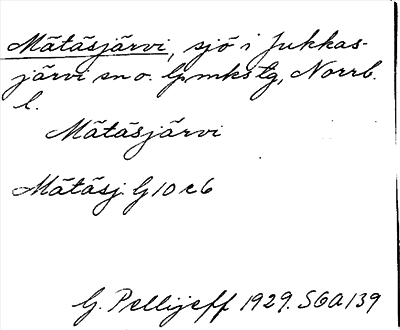 Mätäsjärvi, sjö i Jukkas-
järvi sn o. lpmkstg, Norrb.
l.
Mätäsjärvi
Mätäsj. G 10 c 6
G. Pellijeff 1929. SOA 139